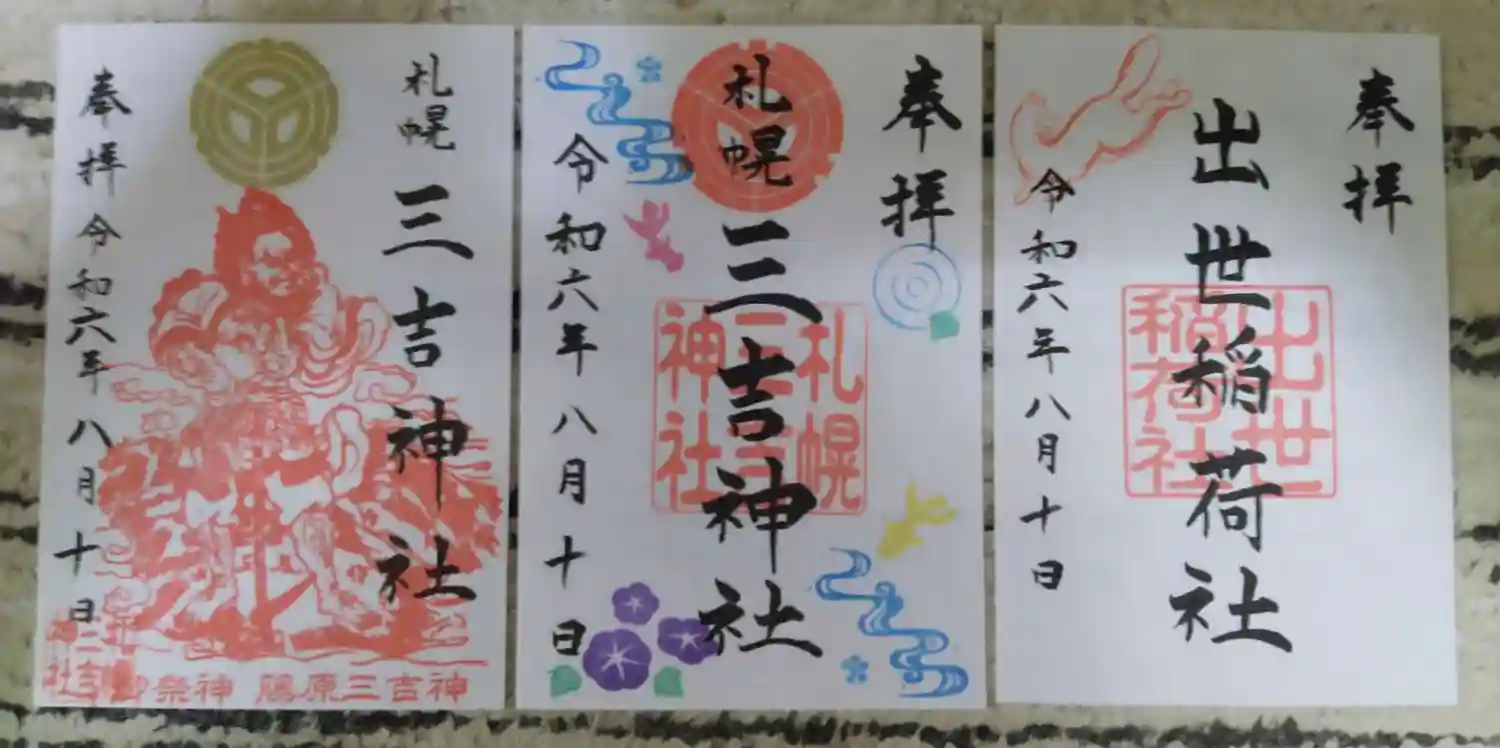 札幌
三吉神社
奉拝 令和六年八月十日
御祭神 藤原三吉神
奉拝
札幌
三吉神社
札幌
三吉
神社
令和六年八月十日
奉拝
出世稲荷社
出世
稲荷社
令和六年八月十日